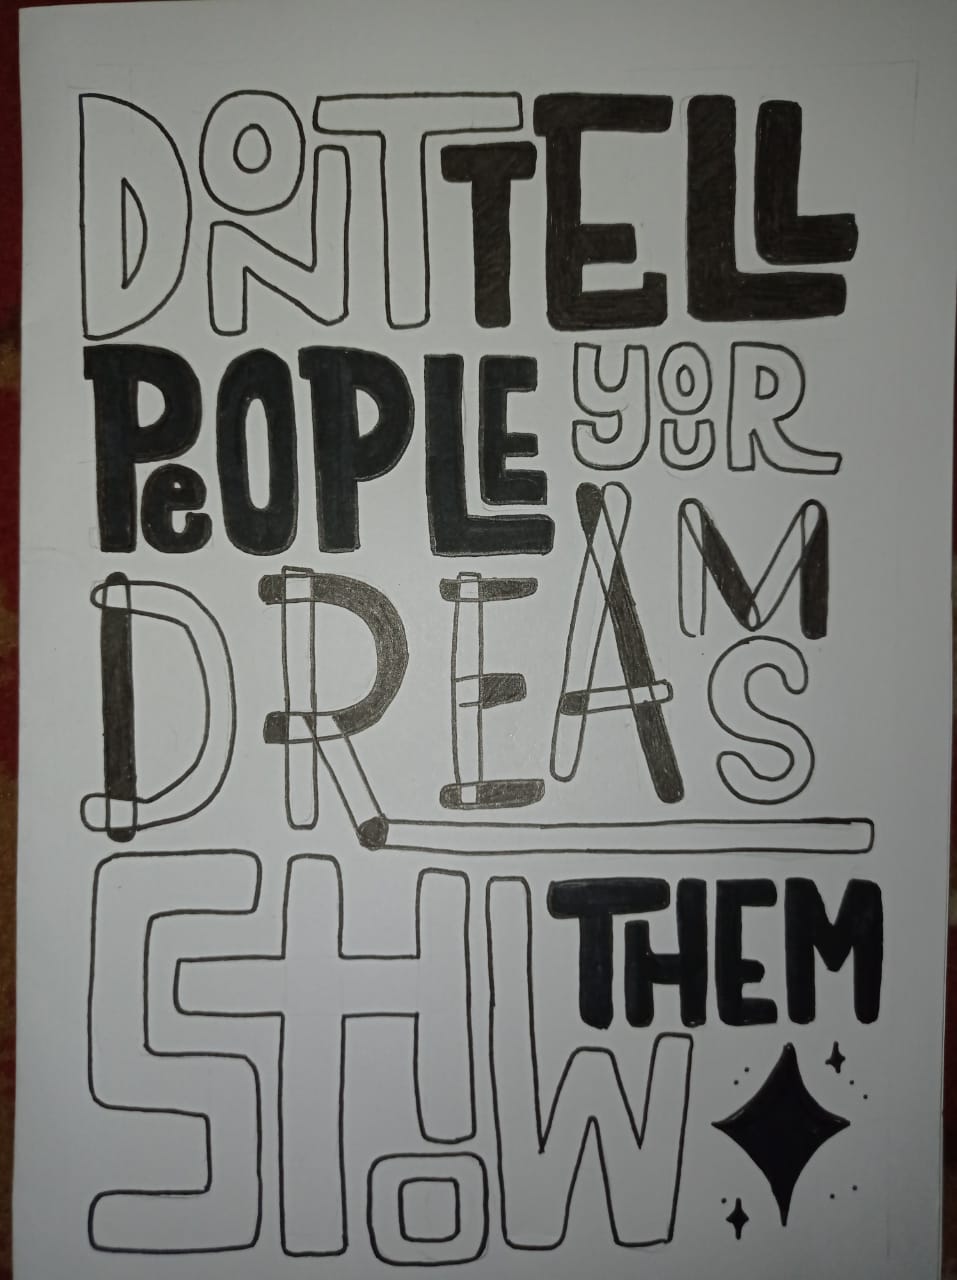 DONT TELL
PEOPLE YOUR
DREAMS
SHOW THEM